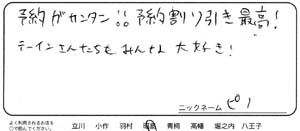 予約がカンタン!!予約割り引き最高!
テーインさんたちもみんな大好き!
ニックネーム ピノ
よく利用されるお店を
○で囲んでください。
立川 小作 羽村 昭島 青梅 高幡 堀之内 八王子